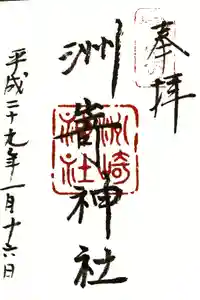 奉拝
洲崎神社
洲崎神社
平成二十九年一月十六日